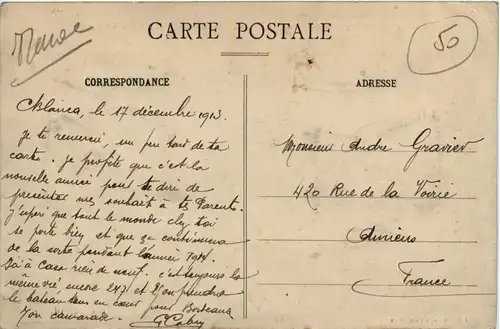 Maroc
50
CARTE POSTALE
CORRESPONDANCE
ADRESSE
Cblanca, le 17 décembre 1913.
Je te remercie, un peu tard de ta
carte. je profite que c'est la
nouvelle année pour te dire de
présenter mes souhait à tes Parents.
J'esperè que tout le monde chez toi
se porte bien et que ça continuera
de la sorte pendant l'année 1914.
Ici à Casa rien de neuf. c'est toujours la
meme vie, encre 247 et l'on prendra
le bateau pour Bordeaux
Ton camarade.
Monsieur Andre Gravier
42a Rue de la Voirie
Amiens
France